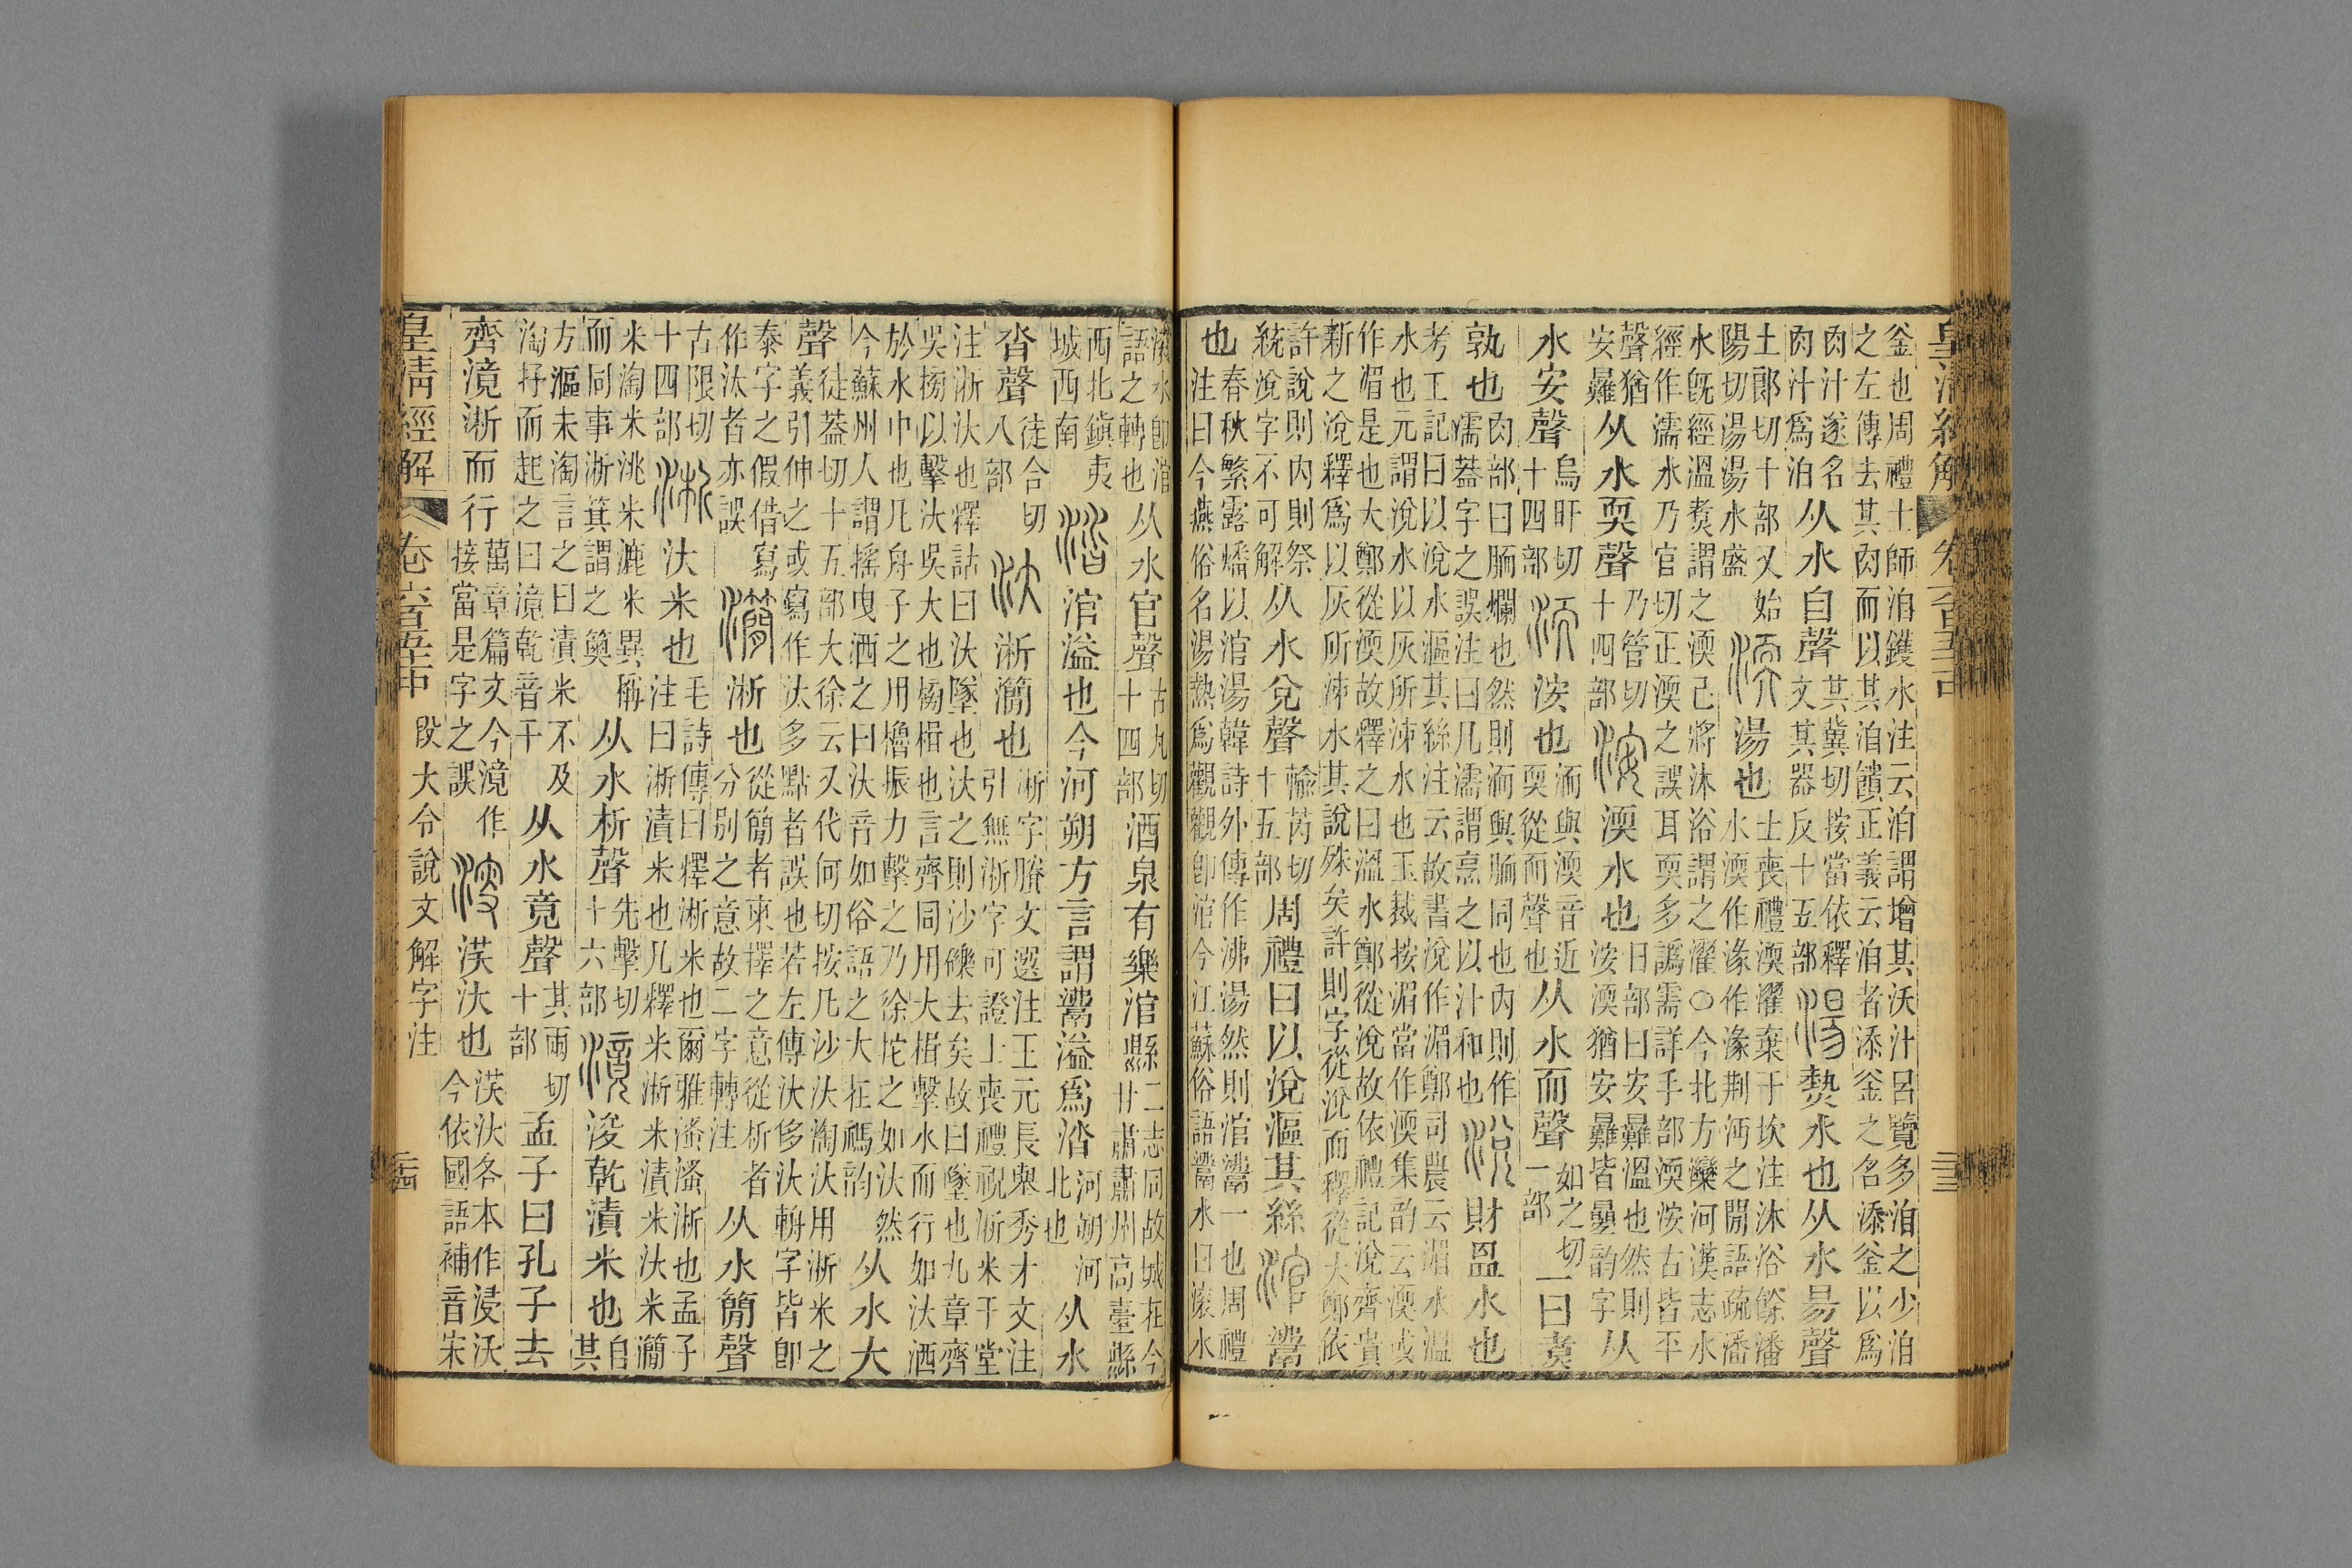 釜也周禮士師洎鑊水注云洎謂增其沃汁呂覽多洎之少洎
之左傳去其肉而以其洎饋正義云洎者添釜之名添釜以爲
肉汁遂名肉汁爲洎从水自聲其冀切按當依釋文其器反十五部湯熱水也从水昜聲
土郎切十部又始陽切湯湯水盛渜湯也士喪禮渜濯棄于坎注沐浴餘潘水渜作湪作湪荆沔之閒語疏潘
水旣經溫煑謂之渜己將沐浴謂之濯○今北方灤河漢志水
經作濡水乃官切正渜之誤耳耎多譌需詳手部渜洝古皆平
聲猶安㬮从水耎聲乃管切十四部洝渜水也日部曰安㬮溫也然則洝渜猶安㬮皆曡韵字从
水安聲烏旰切十四部洏洝也洏與渜音近耎從而聲也从水而聲如之切一部一曰煑
孰也肉部曰胹爛也然則洏與胹同也內則作濡葢字之誤注曰凡濡謂烹之以汁和也涚財温水也
考工記曰以涚水漚其絲注云故書涚作湄鄭司農云湄水溫
水也元謂涚水以灰所沬水也玉裁按湄當作渜集韵云渜或
作㵟是也大鄭從渜故釋之曰溫水鄭從涚故依禮記涚齊貴
新之涚釋爲以灰所沬水其說殊矣許則字從涚而釋從大鄭依
許說則內則祭統涚字不可解从水兌聲輸芮切十五部周禮曰以涚漚其絲涫䰞
也春秋繁露燔以涫湯韓詩外傳作沸湯然則涫䰞一也周禮注曰今燕俗名湯熱爲觀觀卽涫今江蘇俗語䰞水曰滾水
滾水卽涫語之轉也从水官聲古丸切十四部酒泉有樂涫縣二志同故城在今甘肅肅州高臺縣
西北鎮夷城西南涾涫溢也今河朔方言謂䰞溢爲涾河朔河北也从水
沓聲徒合切八部汏淅灡也淅字賸文選注王元長舉秀才文注引無淅字可證士喪禮祝淅米于堂
注淅汏也釋詁曰汏墜也汏之則沙礫去矣故曰墜也九章齊
吳榜以擊汏吳大也榜楫也言齊同用大楫擊水而行如汏洒
於水中也凡舟子之用櫓振力擊之乃徐拕之如汏然今蘇州人謂搖曳洒之曰汏音如俗語之大在禡韵从水大
聲徒葢切十五部大徐云又代何切按凡沙汏淘汏用淅米之義引伸之或寫作汰多點者誤也若左傳汏侈汏輈字皆卽
泰字之假借寫作汰者亦誤灡淅也從簡者柬擇之意從析者分別之意故二字轉注从水簡聲
古限切十四部淅汏米也毛詩傳曰釋淅米也爾雅溞溞淅也孟子注曰淅漬米也凡釋米淅米漬米汏米灡
米淘米洮米漉米異稱而同事淅箕謂之䉛从水析聲先擊切十六部滰浚乾漬米也自其
方漚未淘言之曰漬米不及淘抒而起之曰滰乾音干从水竟聲其兩切十部孟子曰孔子去
齊滰淅而行萬章篇文今滰作接當是字之誤浚㴽汏也㴽汏各本作浸沃今依國語補音宋
皇清經解 卷六百五十 段大令說文解字注